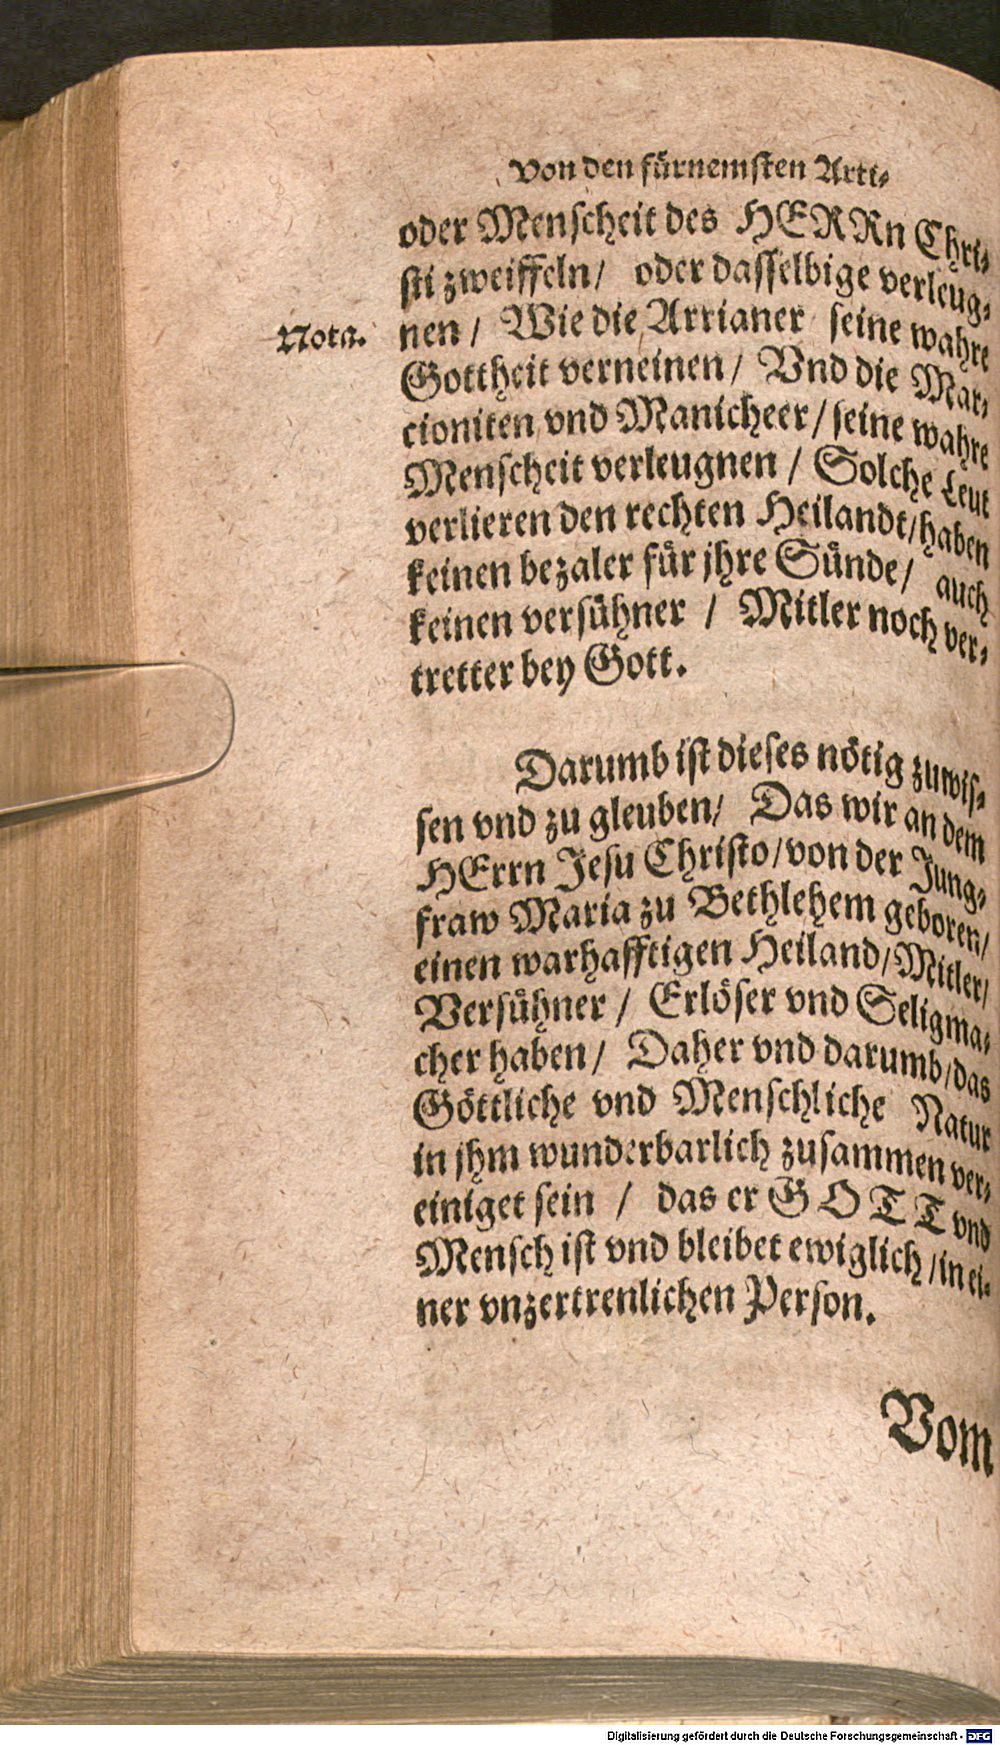 Von den fürnemsten Arti⸗
oder Menscheit des HERRn Chri⸗
sti zweiffeln/ oder dasselbige verleug⸗
Nota.
nen/ Wie die Arrianer seine wahre
Gottheit verneinen/ Vnd die Mar⸗
cioniten vnd Manicheer/ seine wahre
Menscheit verleugnen/ Solche Leut
verlieren den rechten Heilandt/ haben
keinen bezaler für jhre Sünde/ auch
keinen versühner/ Mitler noch ver⸗
tretter bey Gott.
Darumb ist dieses nötig zuwis⸗
sen vnd zu gleuben/ Das wir an dem
HErrn Jesu Christo/ von der Jung⸗
fraw Maria zu Bethlehem geboren/
einen warhafftigen Heiland/ Mitler/
Versühner/ Erlöser vnd Seligma⸗
cher haben/ Daher vnd darumb/ das
Göttliche vnd Menschliche Natur
in jhm wunderbarlich zusammen ver⸗
einiget sein/ das er GOTT vnd
Mensch ist vnd bleibet ewiglich/ in ei⸗
ner vnzertrenlichen Person.
Vom
Digitalisierung gefördert durch die Deutsche Forschungsgemeinschaft - DFG